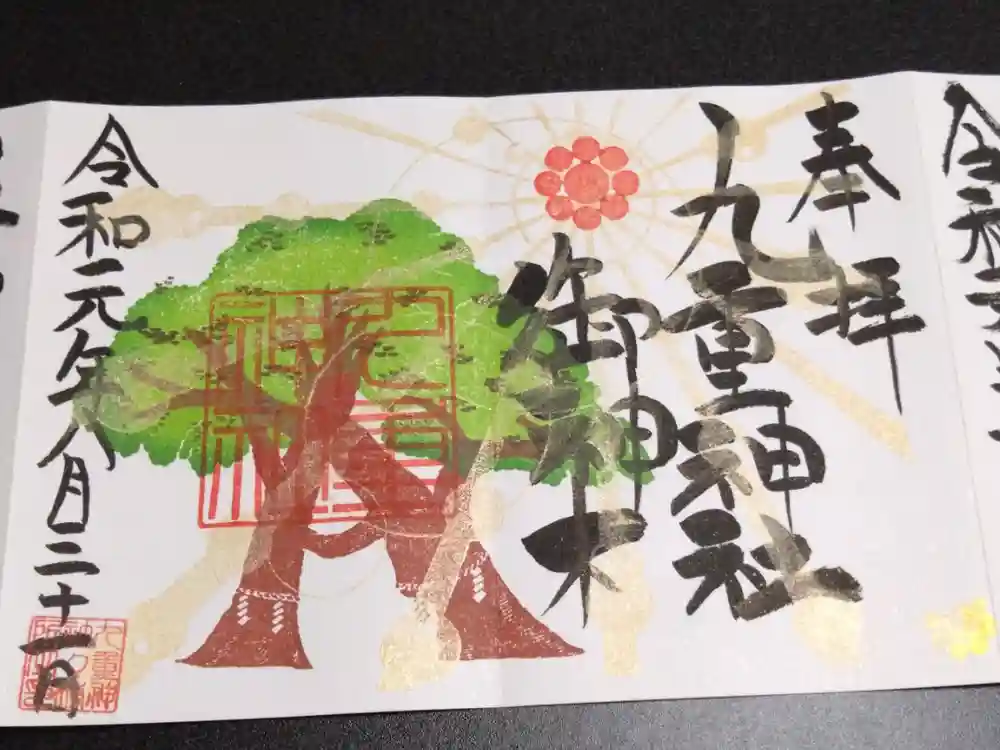 奉拝
九重神社
御神木
令和元年八月二十一日